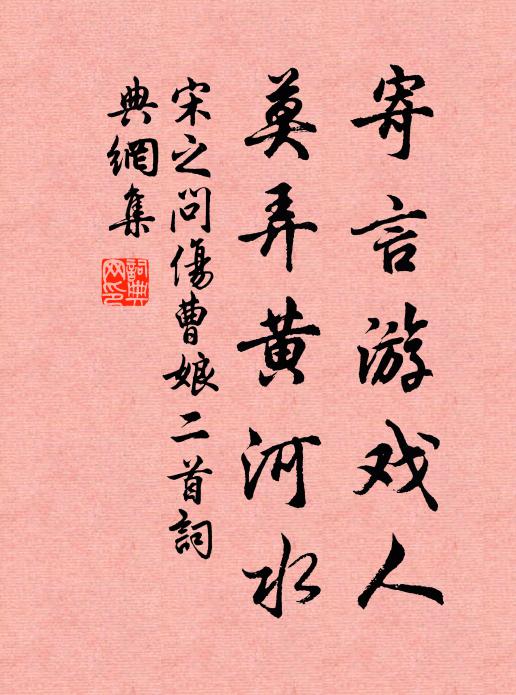 寄言游戏人
莫弄黄河水
宋之问傷曹娘二首詞
典網集
詞典
网印